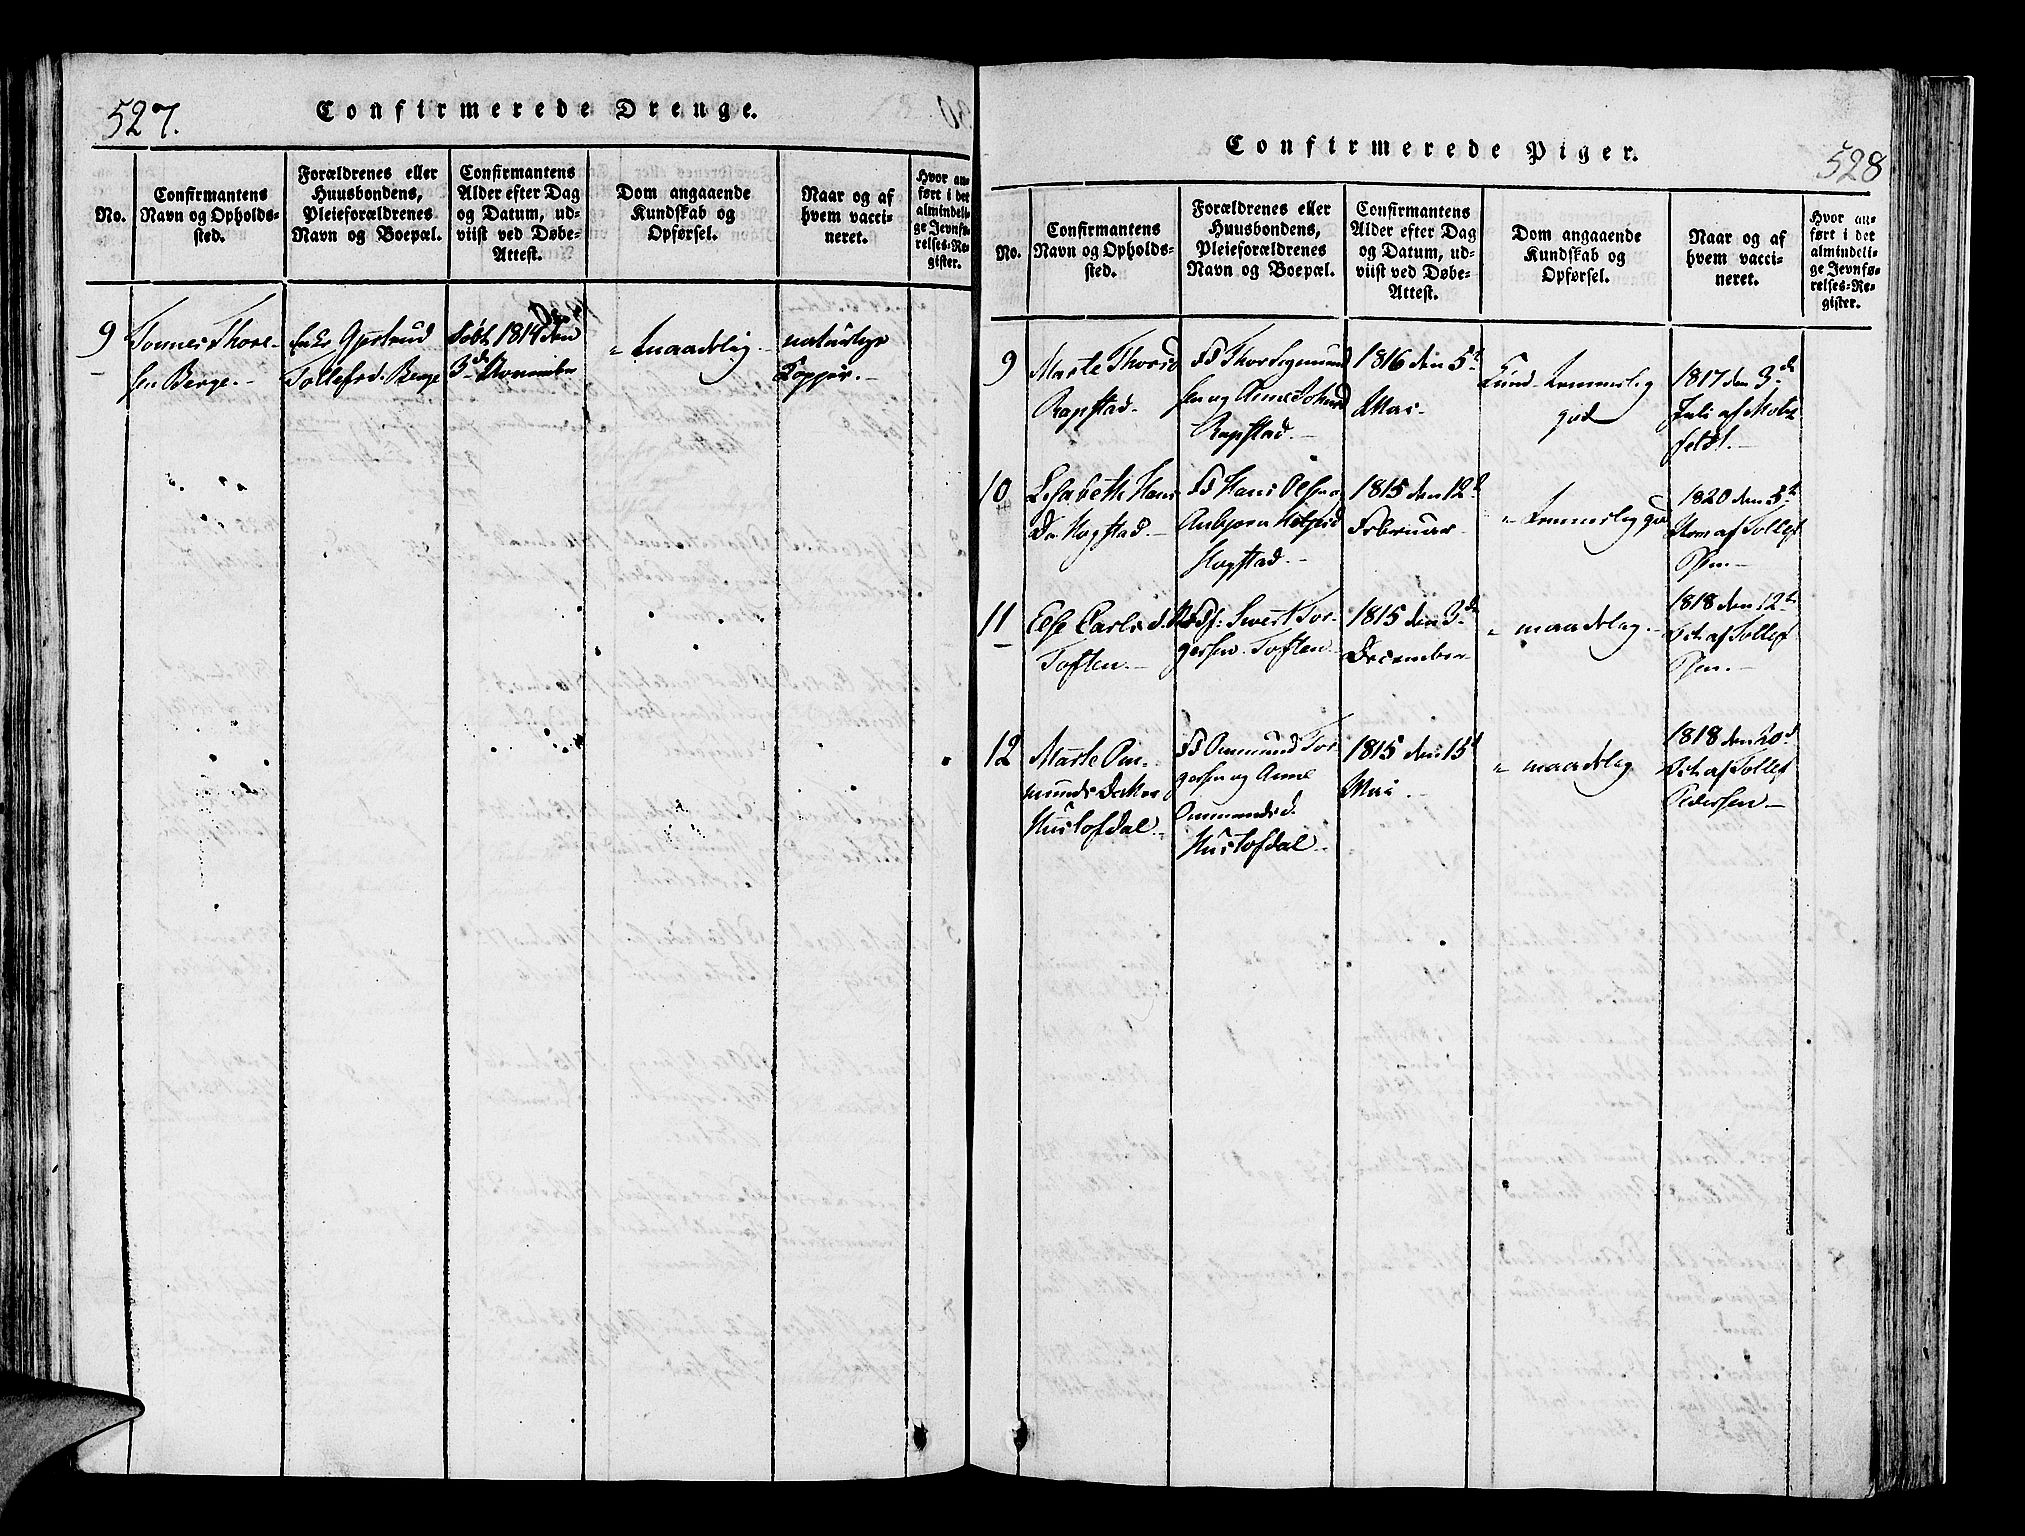 527.
Confirmerede Drenge.
No.
Confirmantens
Navn og Opholds-
sted.
Forældrenes eller
Huusbondens,
Pleieforældrenes
Navn og Boepæl.
Confirmantens
Alder efter Dag
og Datum, ud-
viist ved Døbe-
Attest.
Dom angaaende
Kundskab og
Opførsel.
Naar og af
hvem vacci-
neret.
Hvor an-
ført i det
almindeli-
ge Jevnfø-
relses-Re-
gister.
9
Tonnes Thore-
sen Berge.
Enke
Tollefsd. Berge
døbt 1814 den
3d November
maadelig
naturlige
Kopper.
Confirmerede Piger.
528
No.
Confirmantens
Navn og Opholds-
sted.
Forældrenes eller
Huusbondens,
Pleieforældrenes
Navn og Boepæl.
Confirmantens
Alder efter Dag
og Datum, ud-
viist ved Døbe-
Attest.
Dom angaaende
Kundskab og
Opførsel.
Naar og af
hvem vacci-
neret.
Hvor an-
ført i det
almindeli-
ge Jevnfø-
relses-Re-
gister.
9
Marte Thorsd
Rapstad.
F Thor Sigmund
sen og Anne
Rapstad.
1816 den 5t
Mai.
Kund. temmelig
god
1817 den 3d
Juli af
feldt.
10
Lisabeth Hans
Dr Hogstad.
F Hans Olsen og
Anbjørn
Hogstad.
1815 den 12t
Februar
temmelig god
1820 den 5t
af Tollef
Psen.
11
Else Carls d.
Toften.
Pf: Sivert Tor-
gersen Toften
1815 den 3d
December
maadelig.
1818 den 12t
Oct. af Tollef
Psen.
12
Marte Om-
munds Datter
Hustofdal.
F Ommund Tor
gersen og Anne
Ommundsd.
Hustofdal.
1815 den 15t
Mai.
maadelig
1818 den 20d
Oct. af Tollef
Pedersen